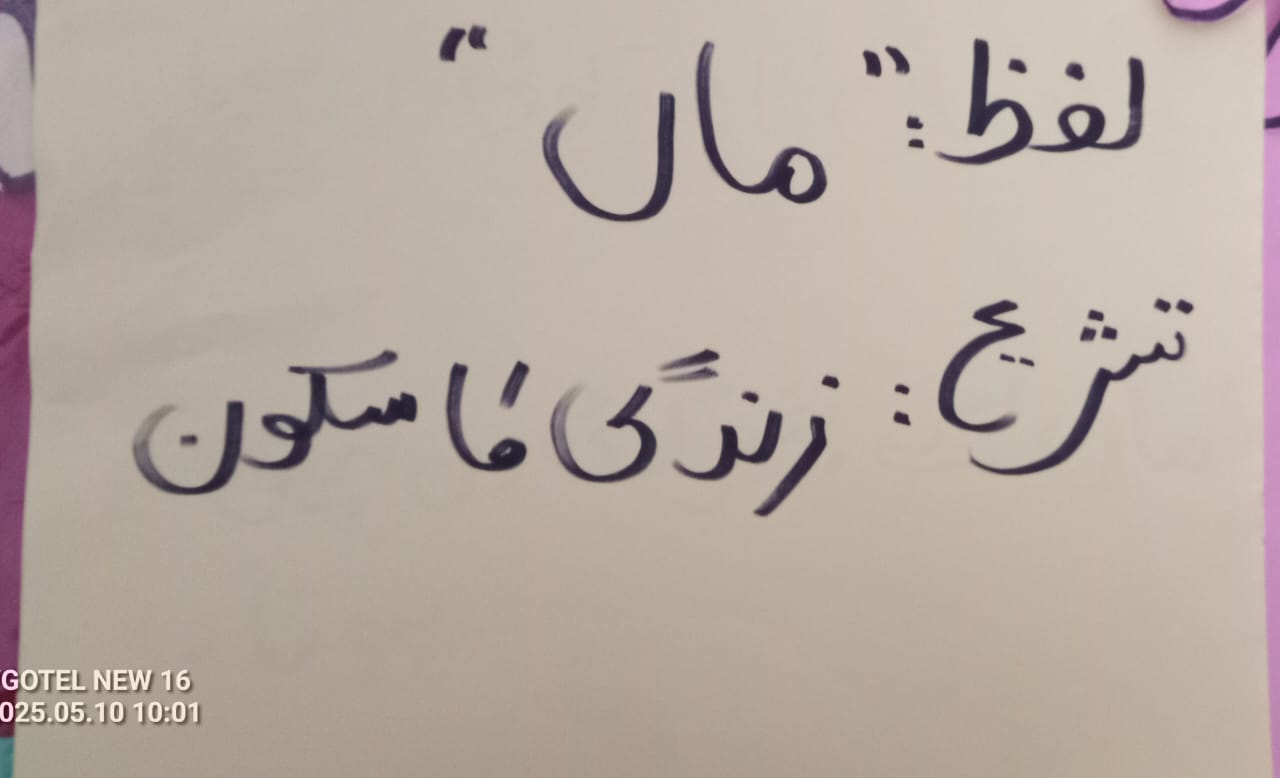 لفظ: "ماں"
تشریح: زندگی کا سکون
GOTEL NEW 16
025.05.10 10:01